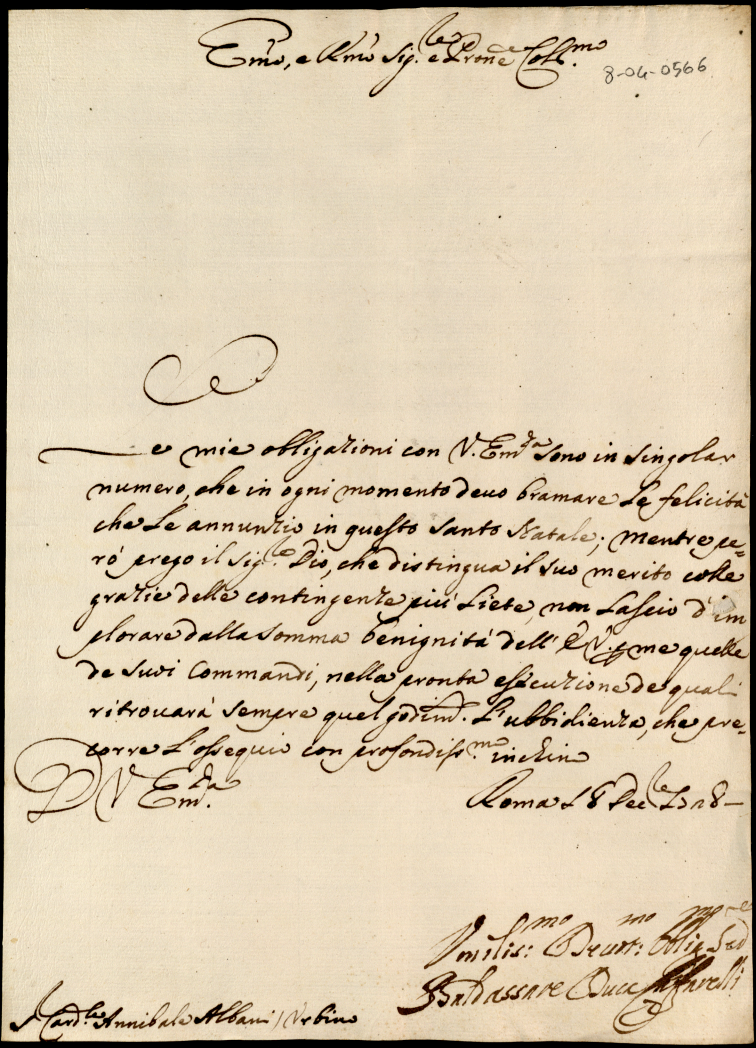 Em̃o, e Rm̃o Sig.re e Pron̄e Coll.mo
8-04-0566
Le mie obligazioni con V. Em.za sono in singolar
numero, che in ogni momento devo bramare le felicità
che Le annunzio in questo Santo Natale; mentre pe=
rò prego il Sig.re Dio, che distingua il suo merito colle
grazie delle contingenze più liete, non lascio d'im
plorare dalla somma benignità dell' E. V. p me quelle
de suoi Commandi, nella pronta essecuzione de quali
ritrovarà sempre quel godim.to L'ubbidienza, che pre=
corre L'ossequio con profondiss.mo inchino
D V Em.za
Roma 18 Dec.re
Vmilis:mo Devot:mo Oblig.mo Ser.re
Baldassare Duca Caffarelli
S. Card.le Annibale Albani / Urbino